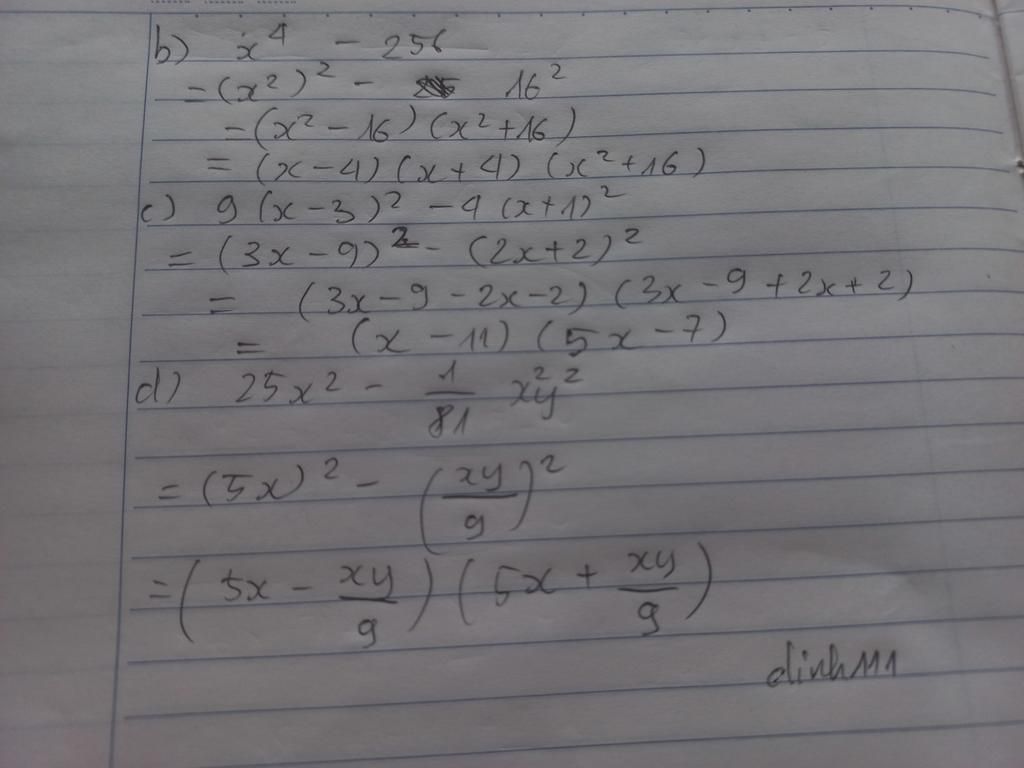 b) x⁴ - 256
= (x²)² - 16²
= (x² - 16) (x² + 16)
= (x - 4) (x + 4) (x² + 16)
c) 9 (x - 3)² - 4 (x + 1)²
= (3x - 9)² - (2x + 2)²
= (3x - 9 - 2x - 2) (3x - 9 + 2x + 2)
= (x - 11) (5x - 7)
d) 25x² - 1/81 x²y²
= (5x)² - (xy/9)²
= (5x - xy/9) (5x + xy/9)
dinh111